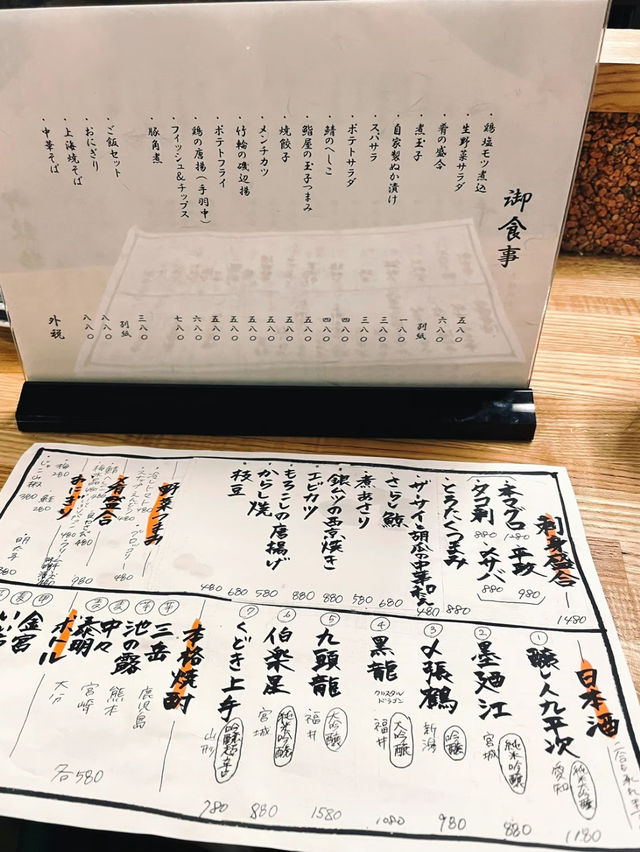 御食事
・鶏塩モツ煮込 五八〇
・生野菜サラダ 六八〇
・肴の盛合 別紙
・煮玉子 一八〇
・自家製ぬか漬け 三八〇
・スパサラ 三八〇
・ポテトサラダ 四八〇
・鯖のへしこ 四八〇
・鮨屋の玉子つまみ 五八〇
・焼餃子 五八〇
・メンチカツ 五八〇
・竹輪の磯辺揚 五八〇
・ポテトフライ 五八〇
・鶏の唐揚(手羽中) 六八〇
・フィッシュ&チップス 七八〇
・豚角煮
・ご飯セット 三八〇
・おにぎり 別紙
・上海焼そば 八八〇
・中華そば 八八〇
外税
刺身盛合 1480
・本マグロ 1280
・平政 980
・タコ刺 880
・〆サバ 880
・とろたくつまみ 880
・ザーサイ胡瓜の中華和え 480
・さらし鯨 680
・煮あさり 580
・銀ムツの西京焼き 880
・エビカツ 580
・もろこしの唐揚げ 580
・からし焼 680
・枝豆 480
野菜つまみ
肴盛合
おにぎり
・梅 280
・鮭 280
明太子
日本酒
① 醸し人九平次 純米大吟醸 愛知 1180
② 墨廼江 純米吟醸 宮城 880
③ 〆張鶴 吟醸 新潟 980
④ 黒龍 クリスタルドラゴン 大吟醸 福井 1080
⑤ 九頭龍 大吟醸 福井 1580
⑥ 伯楽星 純米吟醸 宮城 880
⑦ くどき上手 山形 780
本格焼酎
芋 三岳 鹿児島
芋 池の露 熊本
麦 中々 宮崎
麦 泰明 大分
各580
ボトル
金宮